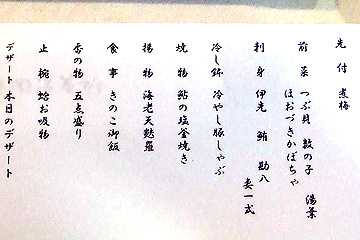 先付 煮梅
前菜 つぶ貝 数の子 湯葉
ほおづきかぼちゃ
刺身 伊先 鮪 勘八
妻一式
冷し鉢 冷やし豚しゃぶ
焼物 鮎の塩釜焼き
揚物 海老天麩羅
食事 きのこ御飯
香の物 五点盛り
止椀 蛤お吸物
デザート 本日のデザート